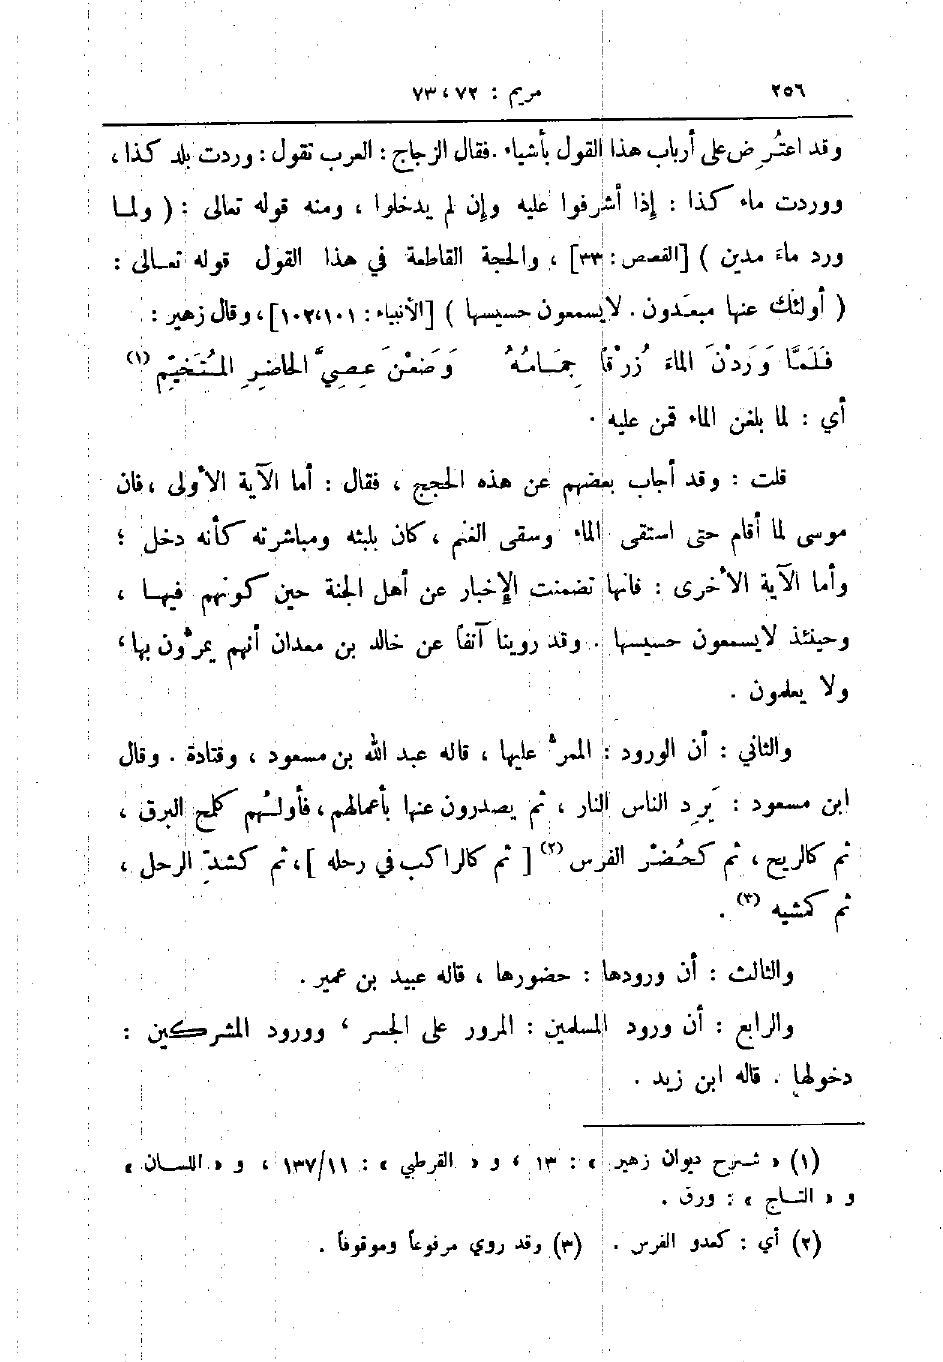 ٢٥٦ مريم : ٧٢ ، ٧٣
وقد اعتُرِض على أرباب هذا القول بأشياء . فقال الزجاج : العرب تقول : وردت بلد كذا ،
ووردت ماء كذا : إذا أشرفوا عليه وإن لم يدخلوا ، ومنه قوله تعالى : ( ولما
ورد ماءَ مدين ) [القصص : ٢٣] ، والحجة القاطعة في هذا القول قوله تعالى :
( أولئك عنها مبعَدون . لا يسمعون حسيسها ) [الأنبياء : ١٠١ ، ١٠٢] ، وقال زهير :
فَلَمَّا وَرَدْنَ الماءَ زُرْقاً جِمَامُهُ وَضَعْنَ عِصِيَّ الحاضِرِ المُتَخَيِّمِ (١)
أي : لما بلغن الماء قمن عليه .
قلت : وقد أجاب بعضهم عن هذه الحجج ، فقال : أما الآية الأولى ، فان
موسى لما أقام حتى استقى الماء وسقى الغنم ، كان بلبثه ومباشرته كأنه دخل ؛
وأما الآية الأخرى : فانها تضمنت الإخبار عن أهل الجنة حين كونهم فيها ،
وحينئذ لا يسمعون حسيسها . وقد روينا آنفاً عن خالد بن معدان أنهم يمرُّون بها ،
ولا يعلمون .
والثاني : أن الورود : الممرُّ عليها ، قاله عبد الله بن مسعود ، وقتادة . وقال
ابن مسعود : يَرِد الناس النار ، ثم يصدرون عنها بأعمالهم ، فأولهُم كلمح البرق ،
ثم كالريح ، ثم كحُضْر الفرس (٢) [ ثم كالراكب في رحله ] ، ثم كشدِّ الرحل ،
ثم كمشيه (٣) .
والثالث : أن ورودها : حضورها ، قاله عبيد بن عمير .
والرابع : أن ورود المسلمين : المرور على الجسر ، وورود المشركين :
دخولها . قاله ابن زيد .
(١) « شرح ديوان زهير » : ١٣ ، و « القرطبي » : ١٣٧/١١ ، و « اللسان »
و « التاج » : ورق .
(٢) أي : كعدو الفرس . (٣) وقد روي مرفوعاً وموقوفاً .